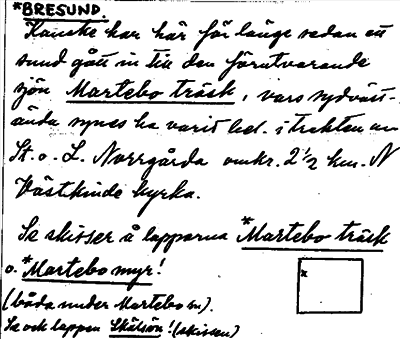 *BRESUND.
Kanske har här för länge sedan ett
sund gått in till den förutvarande
sjön Martebo träsk, vars sydväst-
ända synes ha varit bel. i trakten av
St. o. L. Norrgårda omkr. 2 ½ km. N
Västkinde kyrka.
Se skisser å lapparna *Martebo träsk
o. *Martebo myr!
(båda under Martebo sn).
Se ock lappen Skälsön! (skissen)
x